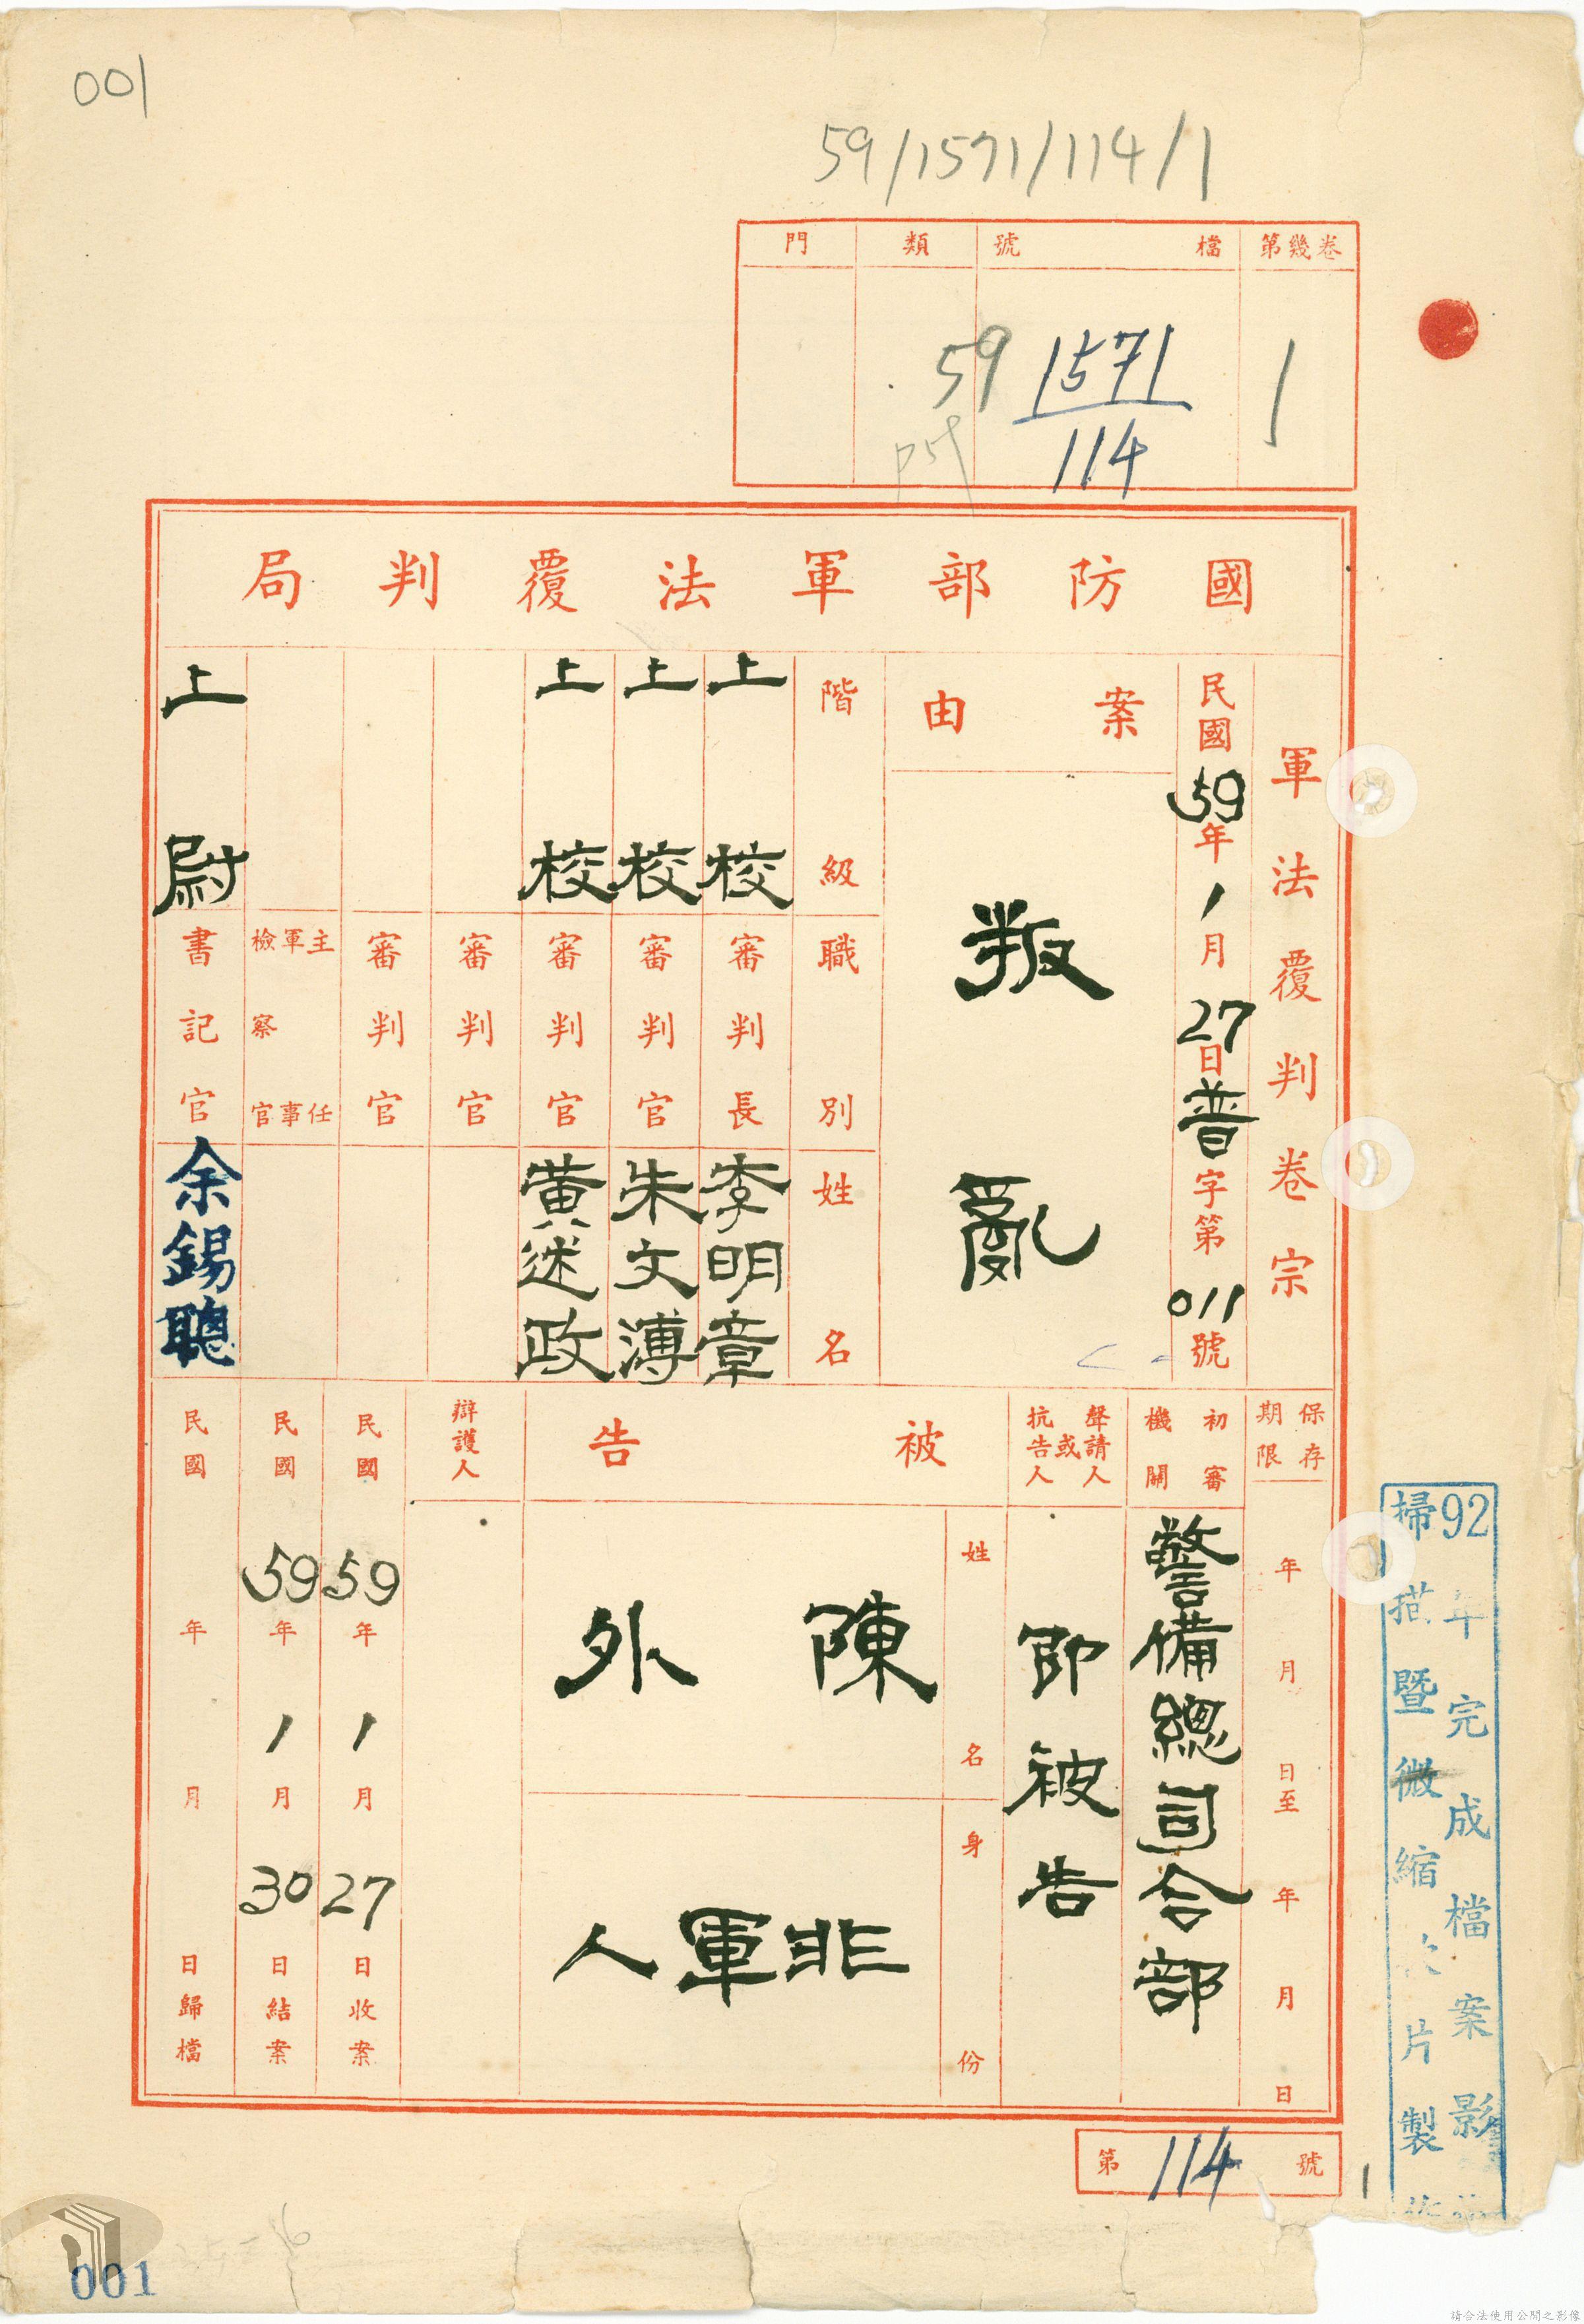 001
59/1571/114/1
第幾卷 檔號 類 門
1
1571
114
59
國防部軍法覆判局
軍法覆判卷宗
民國59年1月27日普字第011號
案由
叛亂
階級 職別 姓名
上校 審判長 李明章
上校 審判官 朱文溥
上校 審判官 黃述政
審判官
審判官
主任軍事檢察官
上尉 書記官 余錫聰
保存期限
年月日至年月日
初審機關
警備總司令部
聲請人或抗告人
即被告
被告
姓名
陳外
身份
非軍人
辯護人
民國59年1月27日收案
民國59年1月30日結案
民國年月日歸檔
第114號
1
92年完成檔案影
掃描暨微縮片製
001
請合法使用公開之影像